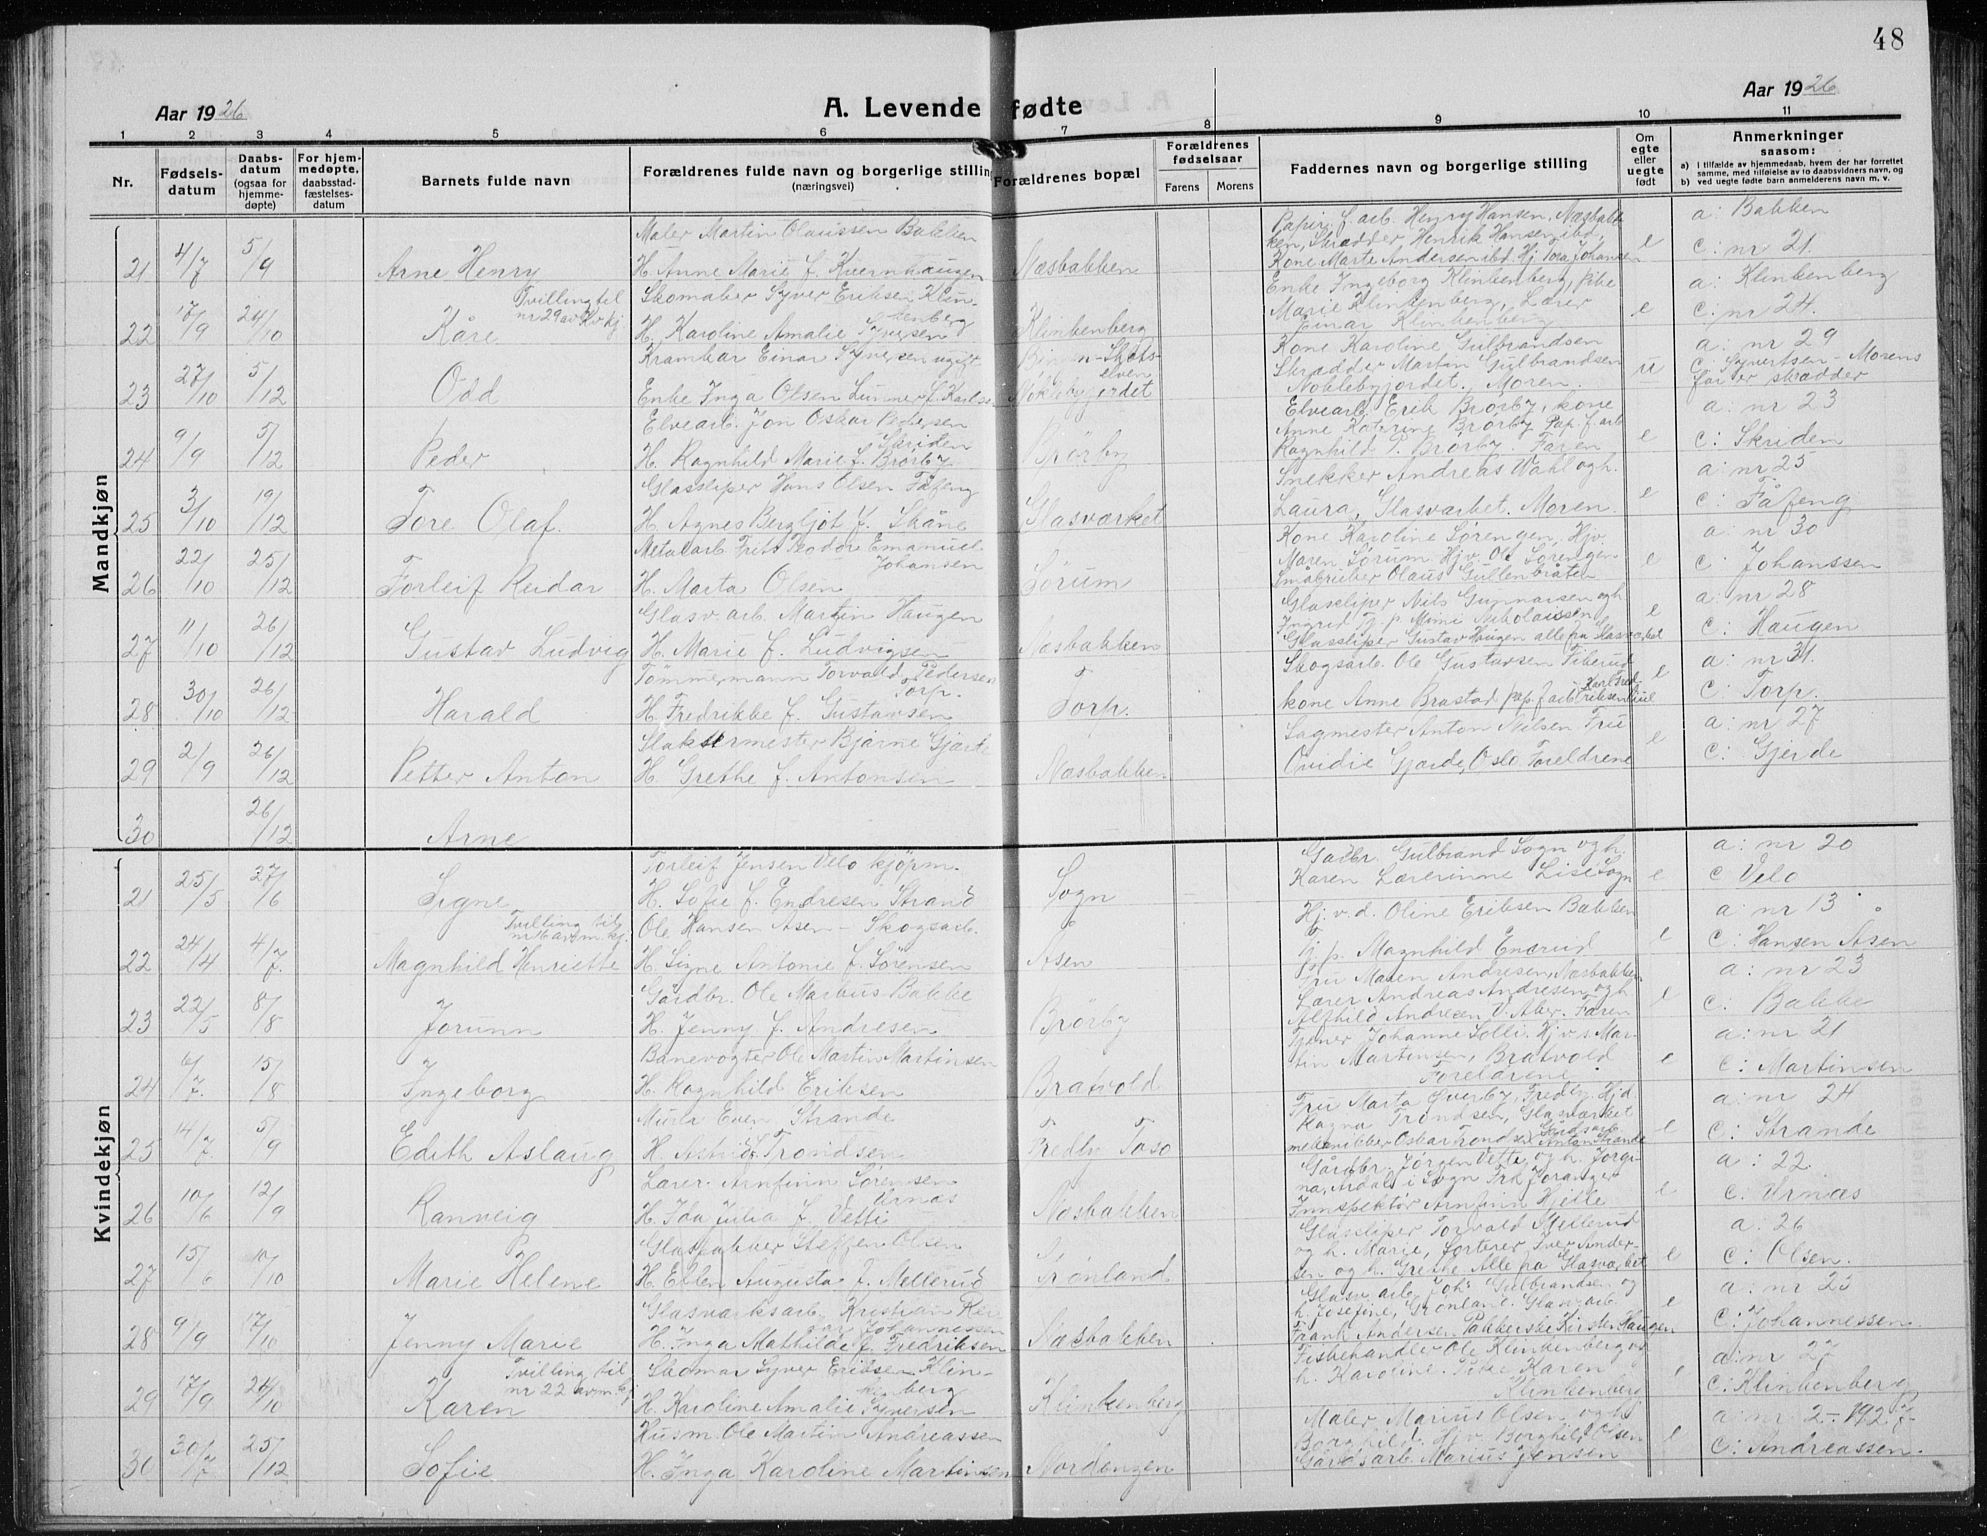 48
Aar 1926
A. Levende fødte
Aar 1926
1 2 3 4 5 6 7 8 9 10 11
Nr.
Fødselsdatum
Daabsdatum (ogsaa for hjemmedøpte)
For hjemmedøpte, daabsstadfæstelsesdatum
Barnets fulde navn
Forældrenes fulde navn og borgerlige stilling (næringsvei)
Forældrenes bopæl
Forældrenes fødselsaar
Farens Morens
Faddernes navn og borgerlige stilling
Om egte eller uegte født
Anmerkninger saasom:
a) I tilfælde av hjemmedaab, hvem der har forrettet samme, med tilføielse av to daabsvidners navn, og
b) ved uegte fødte barn anmelderens navn m. v.
Mandkjøn
Maler Martin Olaussen Bakken
21 4/7 5/9 Arne Henry H. Anne Marie f. Kvernhaugen Næsbakken
Papirf. arb. Henry Hansen, Næsbakken, Skrædder Henrik Hansen ibd,
Kone Marte Andersen ibd. Hj. Tora Johansen e
a: Bakken
c: nr 21
Tvilling til nr 29 av kv kj
Skomaker Syver Eriksen Klinkenberg
22 17/9 24/10 Kåre H. Karoline Amalie Syversen Klinkenberg
Enke Ingeborg Klinkenberg, pike
Marie Klinkenberg, Lærer
Einar Klinkenberg e
a: Klinkenberg
c: nr 24.
Krambar Einar Syversen ugift
23 27/10 5/12 Odd Enke Inga Olsen Lunner f. Karls
Kone Karoline Gulbrandsen
Skrædder Martin Gulbrandsen
Noklebyjordet. Moren. u
a: nr 29
c: Syvertsen - Morens
far er skrædder
Elvearb. Jon Oskar Pedersen Skriden
24 9/9 5/12 Peder H. Ragnhild Marie f. Brørby Brørby
Elvearb. Erik Brørby, kone
Anne Katerine Brørby Pap. f. arb
Ragnhild P. Brørby. Faren e
a: nr 23
c: Skriden
Glassliper Hans Olsen Fåfeng
25 3/10 19/12 Tore Olaf. H. Agnes Bergljot f. Skåne Glasværket
Snekker Andreas Wahl og h.
Laura, Glasvarket. Moren. e
a: nr 25
c: Fåfeng
Metalarb. Frits Teodor Emanuel Johansen
26 22/10 25/12 Torleif Reidar H. Marta Olsen Sørum
Kone Karoline Sørengen, Hjv.
Maren Sørum. Hjv. Ole Sørengen
Småbruker Olaus Gullenbråten e
a: nr 30
c Johanssen
Glasv. arb. Martin Haugen
27 11/10 26/12 Gustav Ludvig H. Marie f. Ludvigsen Næsbakken
Glassliper Nils Gunnarsen og h
Ingrid Tj. p. Mimi Nikolaissen
Glassliper Gustav Haugen alle pa Glasværket e
a: nr 28
c: Haugen
Tømmermann Torvald Pedersen Torp.
28 30/10 26/12 Harald H. Fredrikke f. Gustavsen Torp.
Skogsarb. Ole Gustavsen Tiberud
kone Anne Brastad pap. f. arb e
a: nr 31.
c: Torp.
Slaktermester Bjarne Gjærde
29 2/9 26/12 Petter Anton H. Grethe f. Antonsen Næsbakken
Sagmester Anton Nilsen Fru
Ovidie Gjærde, Oslo Foreldrene e
a: nr 27
c: Gjerde
30 26/12 Arne
Kvindekjøn
Torleif Jensen Velo kjørm.
21 25/5 27/6 Signe H. Sofie f. Endresen Strand Sogn
Gardbr. Gulbrand Sogn og h.
Karen Lærerinne Lise Sogn e
a: nr 20
c Velo
Tvilling til nr 16 av m. kj.
Ole Hansen Åsen - Skogsarb.
22 24/4 4/7. Magnhild Henriette H. Signe Antonie f. Sørensen Åsen
Hj. v. d. Oline Eriksen Bakken
Tj. p. Magnhild Enerud e
a: nr 13
c: Hansen Åsen
Gårdbr. Ole Markus Bakke
23 22/5 8/8 Jorunn H. Jenny f. Andresen Brørby
Fru Maren Andresen Næsbakken
Lærer Andreas Andresen og h
Alfhild Andresen V. Aker. Faren e
a: nr 23
c: Bakke
Banevogter Ole Martin Martinsen
24 6/7. 15/8 Ingeborg H. Ragnhild Eriksen Bratvold
Tjener Johanne Solli. Hj. v. s. Martin Martinsen, Bratvold
Foreldrene e
a: nr 21
c: Martinsen
Murer Even Strande
25 14/7. 5/9 Edith Aslaug H. Astrid Trondsen Fredly Toso
Fru Marta Øverby, Fredly. Hjd.
Ragna Trondsen, Glasværket
mekaniker Oskar Trondsen Gårdsarb. Anton Strande e
a: nr 24
c: Strande
Lærer Arnfinn Sørensen Urnæs
26 10/6 12/9 Ranveig H. Ida Julia f. Vetti Næsbakken
Gårdbr. Jørgen Vetti og h. Jorgina, Årdal i Sogn Frk Foranger
Innspektør Arnfinn Hjelle e
a: 22
c: Urnæs
Glaspakker Steffen Olsen
27 15/6 10/10 Marie Helene H. Ellen Augusta f. Mellerud Grønland
Glassliper Torvald Mellerud
og h. Marie, Sorterer Iver Andersen og h. Grethe Alle pa Glasværket e
a: 26
c: Olsen.
Glasværksarb. Kristian Reidar Johannessen
28 9/9 17/10 Jenny Marie H. Inga Mathilde f. Fredriksen Næsbakken
Glasv. arb. Joh. Gulbrandsen og
h. Josefine, Grønland. Glasv. arb.
Frank Andersen. Pakkerske Kirsten Haugen e
a: nr 25
c: Johannessen.
Tvilling til nr 22 av m. kj
Skomar Syver Eriksen Klinkenberg
29 17/9 24/10 Karen H. Karoline Amalie Syversen Klinkenberg
Fiskehandler Ole Klinkenberg og
h. Karoline. Pike Karen
Klinkenberg e
a: nr 22
c: Klinkenberg
Husm. Ole Martin Andreassen
30 30/7 25/12 Sofie H. Inga Karoline Martinsen Nordengen
Maler Marius Olsen og h.
Borghild. Hjv. Borghild Olsen
Gårdsarb. Marius Jensen e
a: nr 2 - 1927
c: Andreassen.